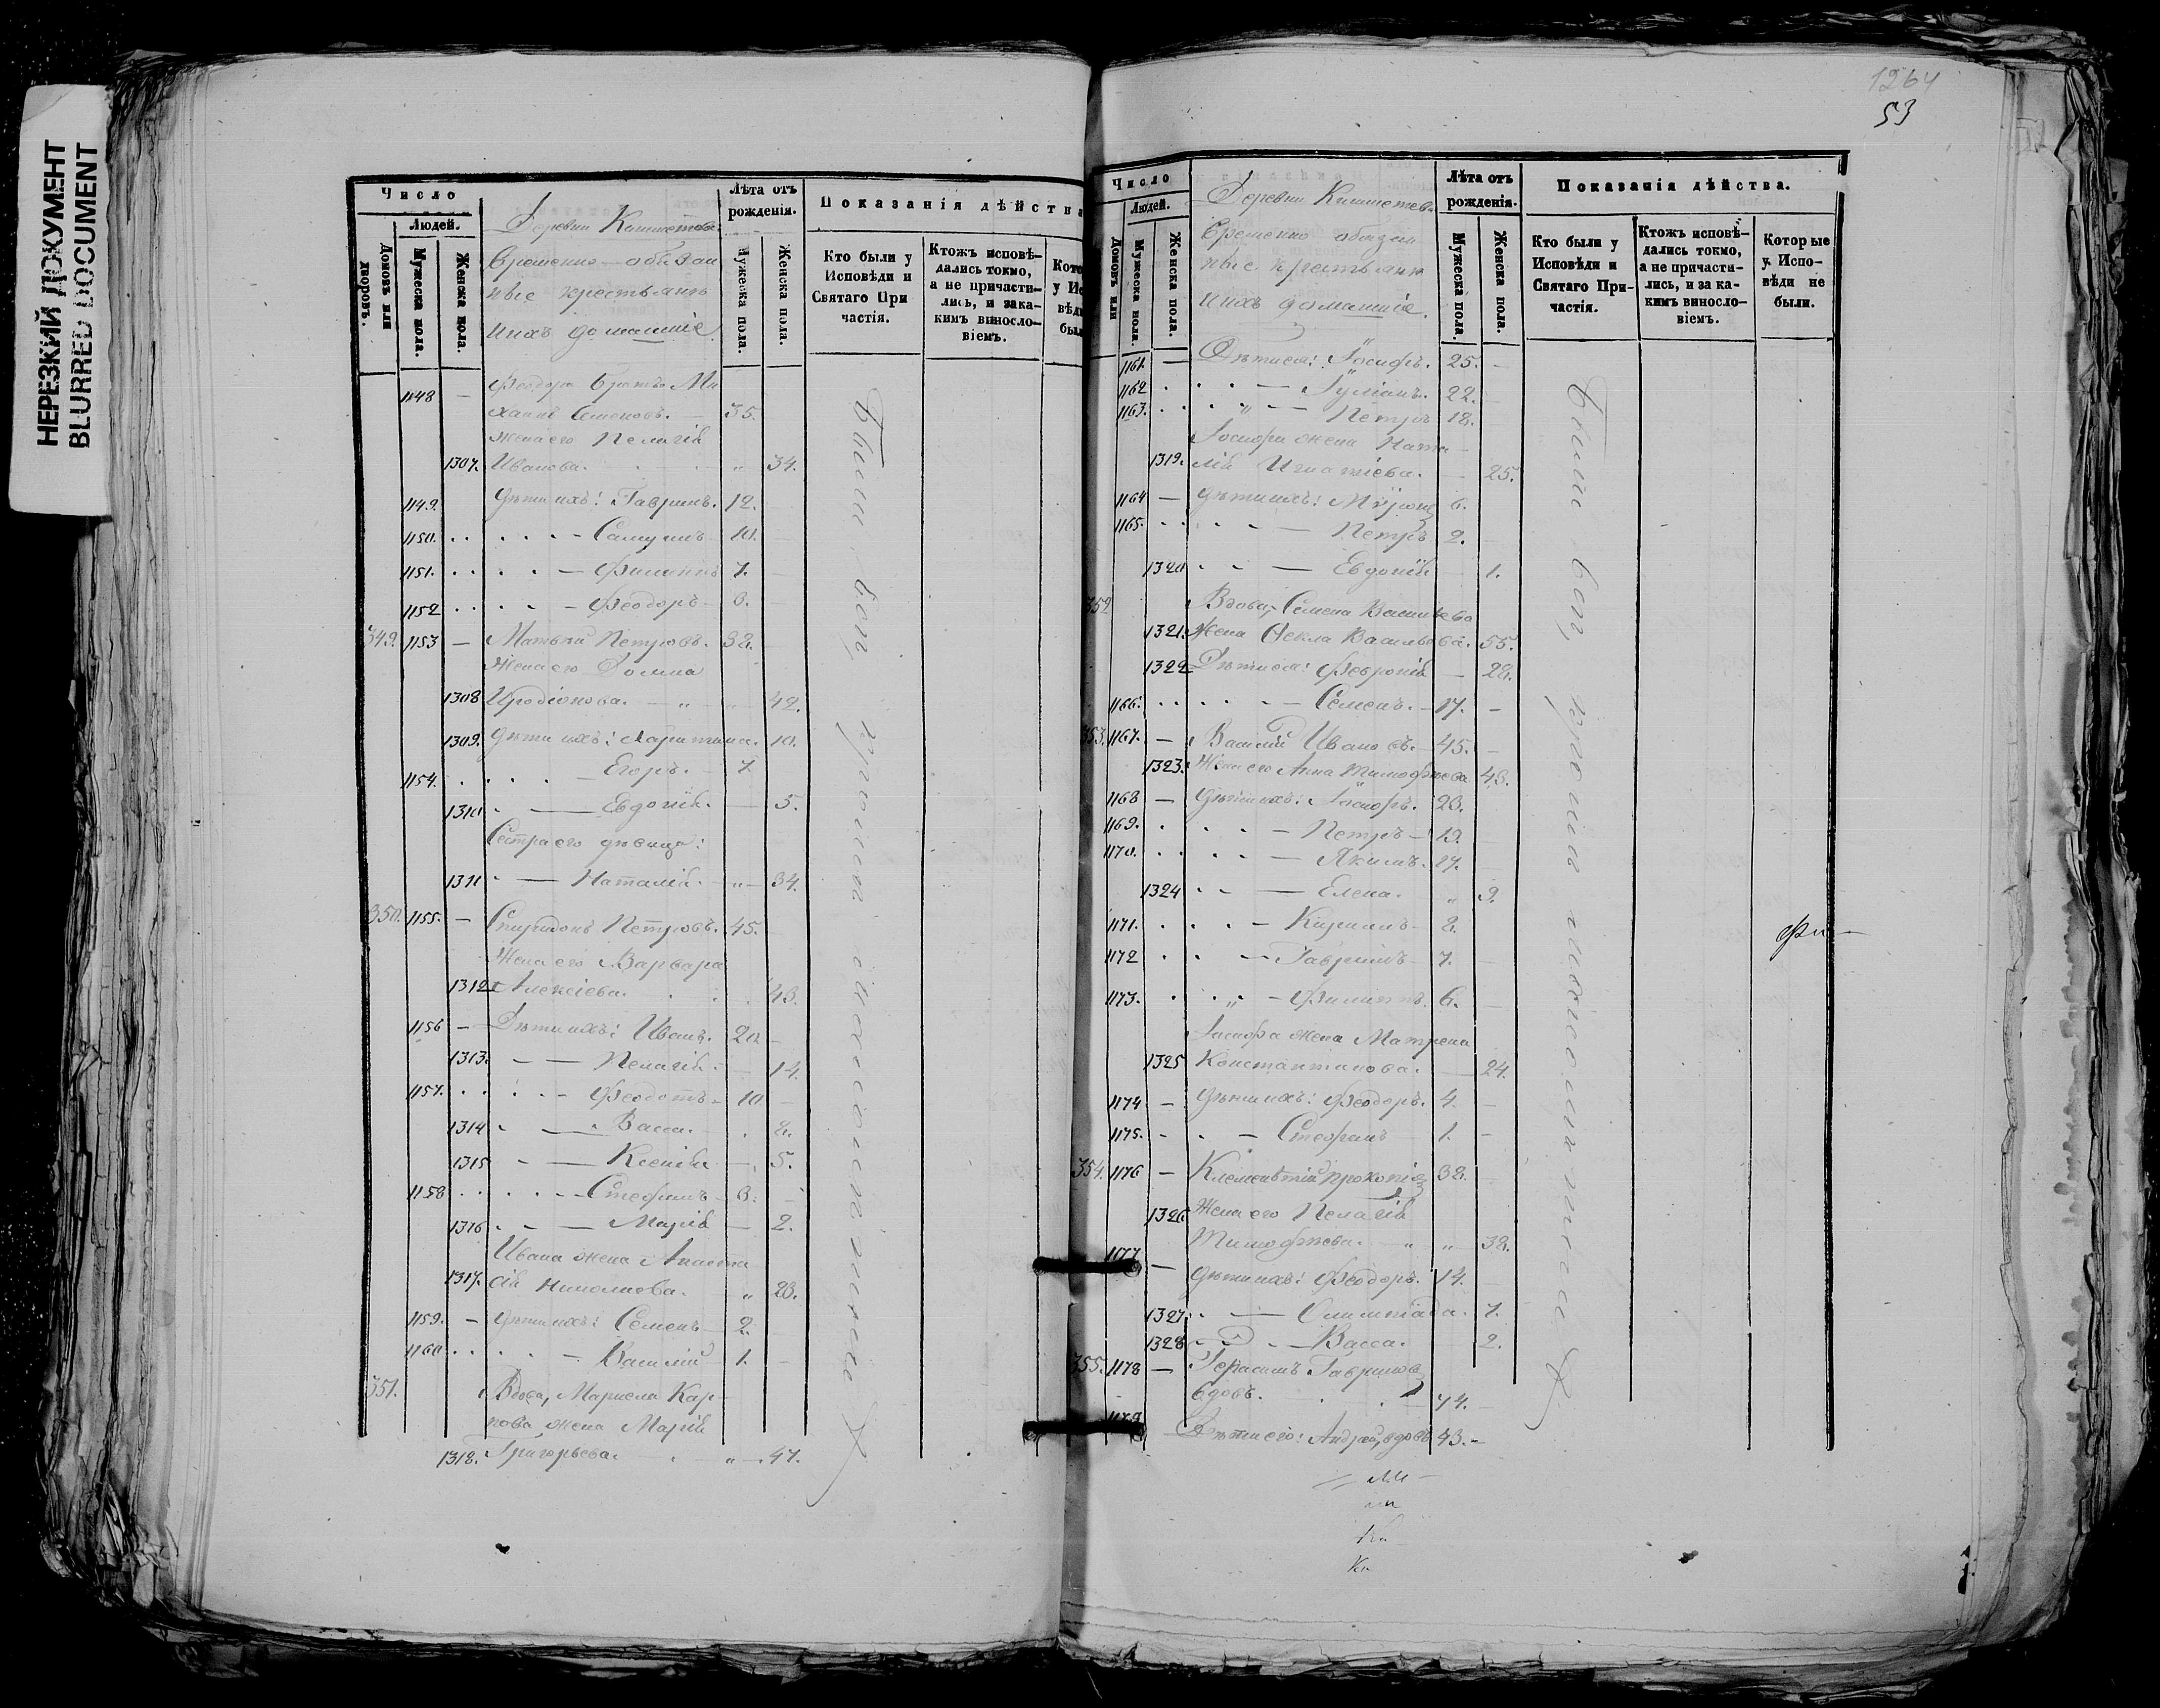 НЕРЕЗКИЙ ДОКУМЕНТ
BLURRED DOCUMENT
Число
Людей.
Домовъ или дворовъ.
Мужеска пола.
Женска пола.
Деревни
Временно-обязан
ные крестьяне
и ихъ домашніе.
Лѣта отъ рожденія.
Мужеска пола.
Женска пола.
Показанія дѣйства
Кто были у Исповѣди и Святаго При частія.
Ктожъ исповѣ- дались токмо, а не причасти- лись, и зака- кимъ винословіемъ.
1148 — Феодора братъ Ми
хаилъ Семеновъ. — 35.
жена его Пелагія
1307. Иванова. „ 34.
1149. дѣти ихъ: Гавріилъ. 12.
1150. — Самуилъ 10.
1151. — Филиппъ 7.
1152 — Феодоръ 3.
349. 1153 — Матѳей Петровъ. 32.
Жена его Домна
1308 Иродіонова. — „ 42.
1309. дѣти ихъ: Харитина. 10.
1154. — Егоръ. 7
1310 — Евдокія. 5.
Сестра его дѣвица:
1311 — Наталія. „ 34.
350. 1155. — Спиридонъ Петровъ. 45.
Жена его Варвара
1312 Алексіева. 43.
1156 — Дѣти ихъ: Иванъ. 20
1313. — Пелагія. 14.
1157. — Феодотъ 10
1314 — Васса. 8.
1315 — Ксенія 5.
1158 — Стефанъ 3.
1316 — Марія 2.
Ивана жена Анаста
1317. сія Николаева. „ 23.
1159. — дѣти ихъ: Семенъ 2.
1160. — Василій 1.
351. Вдова, Маркела Кар-
пова жена Марія
1318. Григорьева. „ 47.
Были вси
1264
53
Число
Людей.
Домовъ или
Мужеска пола.
Женска пола.
Деревни
Временно обязан
ные крестьяне
и ихъ домашніе.
Лѣта отъ рожденія.
Мужеска пола.
Женска пола.
Показанія дѣйства.
Кто были у Исповѣди и Святаго При- частія.
Ктожъ исповѣ- дались токмо, а не причасти- лись, и за ка- кимъ винословіемъ.
Которые у Испо- вѣди не были.
1161. — Дѣти ея: Іосифъ. 25.
1162 — Іуліанъ. 22.
1163. „ — Петръ 18.
Іосифа жена Ната-
1319. лія Игнатіева. — 25.
1164 — дѣти ихъ: 6.
1165. — Петръ 2.
1320 — Евдокія 1.
352 Вдова, Семена Васильева
1321. жена Ѳекла Васильева. 55.
1322 Дѣти ея: Февронія — 28.
1166. — Семенъ. 17.
353. 1167. — Василій Ивановъ. 45.
1323. Жена его Анна Тимофѣева 43.
1168 — дѣти ихъ: Іосифъ. 23.
1169. — Петръ 19.
1170. — Якимъ. 17.
1324 — Елена. „ 9.
1171. — Кирилъ 8.
1172 — Гавріилъ 7.
1173. „ — Филиппъ. 6.
Іосифа жена Матрена
1325 Константинова. 24.
1174 — дѣти ихъ: Феодоръ. 4.
1175. — Стефанъ 1.
354. 1176 — Клементій Прокопіев 38.
1326 Жена его Пелагія
Тимофѣева. „ „ 38.
1177 — дѣти ихъ: Феодоръ. 14.
1327. — Олимпіада. 7.
1328 — Васса. 2.
355. 1178 — Герасимъ Гавриловъ
вдовъ. 74.
1179 Дѣти его: Андрей, вдовъ 43.
Были вси